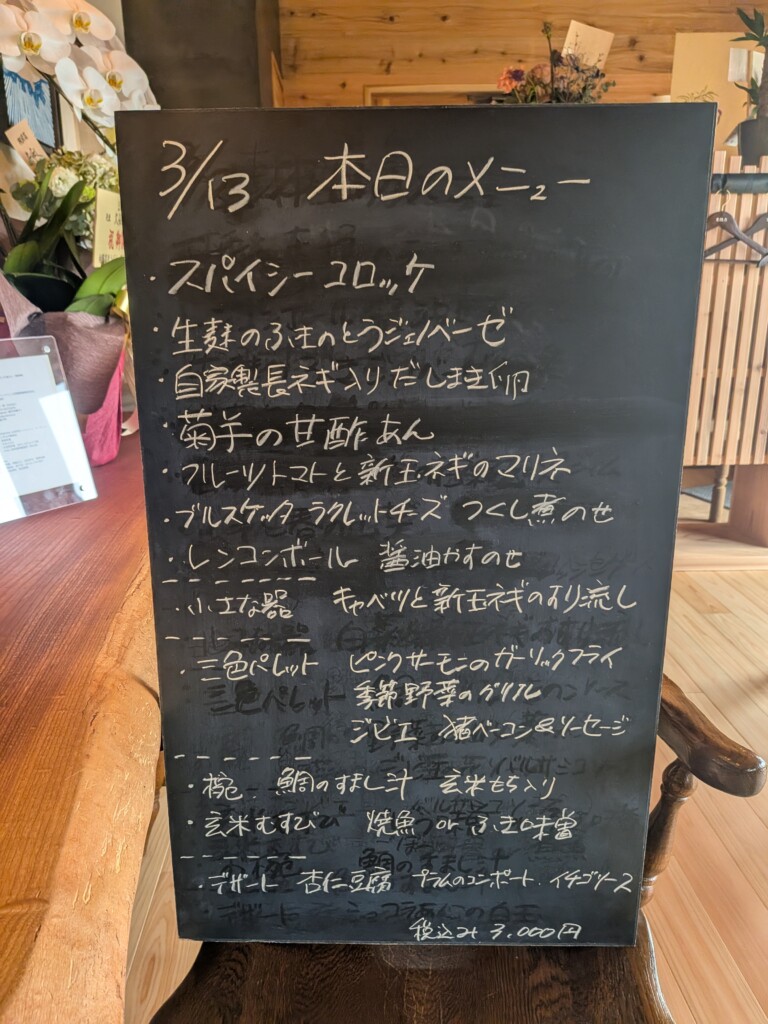 3/13 本日のメニュー
・スパイシーコロッケ
・生麸のふきのとうジェノベーゼ
・自家製長ネギ入りだしまき卵
・菊芋の甘酢あん
・フルーツトマトと新玉ネギのマリネ
・ブルスケッタ ラクレットチーズ つくし煮のせ
・レンコンボール 醤油かすのせ
・小さな器 キャベツと新玉ネギのすり流し
・三色パレット ピンクサーモンのガーリックフライ
季節野菜のグリル
ジビエ 猪ベーコン&ソーセージ
・椀 鯛のすまし汁 玄米もち入り
・玄米むすび 焼魚 or ふき味噌
・デザート 杏仁豆腐 プラムのコンポート.イチゴソース
税込み 3,000円